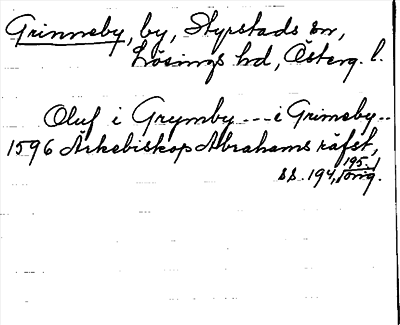 Grinneby, by, Styrstads sn,
Lösings hd, Österg. l.
Oluf i Grymby --- i Grimeby..
1596 Ärkebiskop Abrahams räfst,
ss. 194, 195. orig.